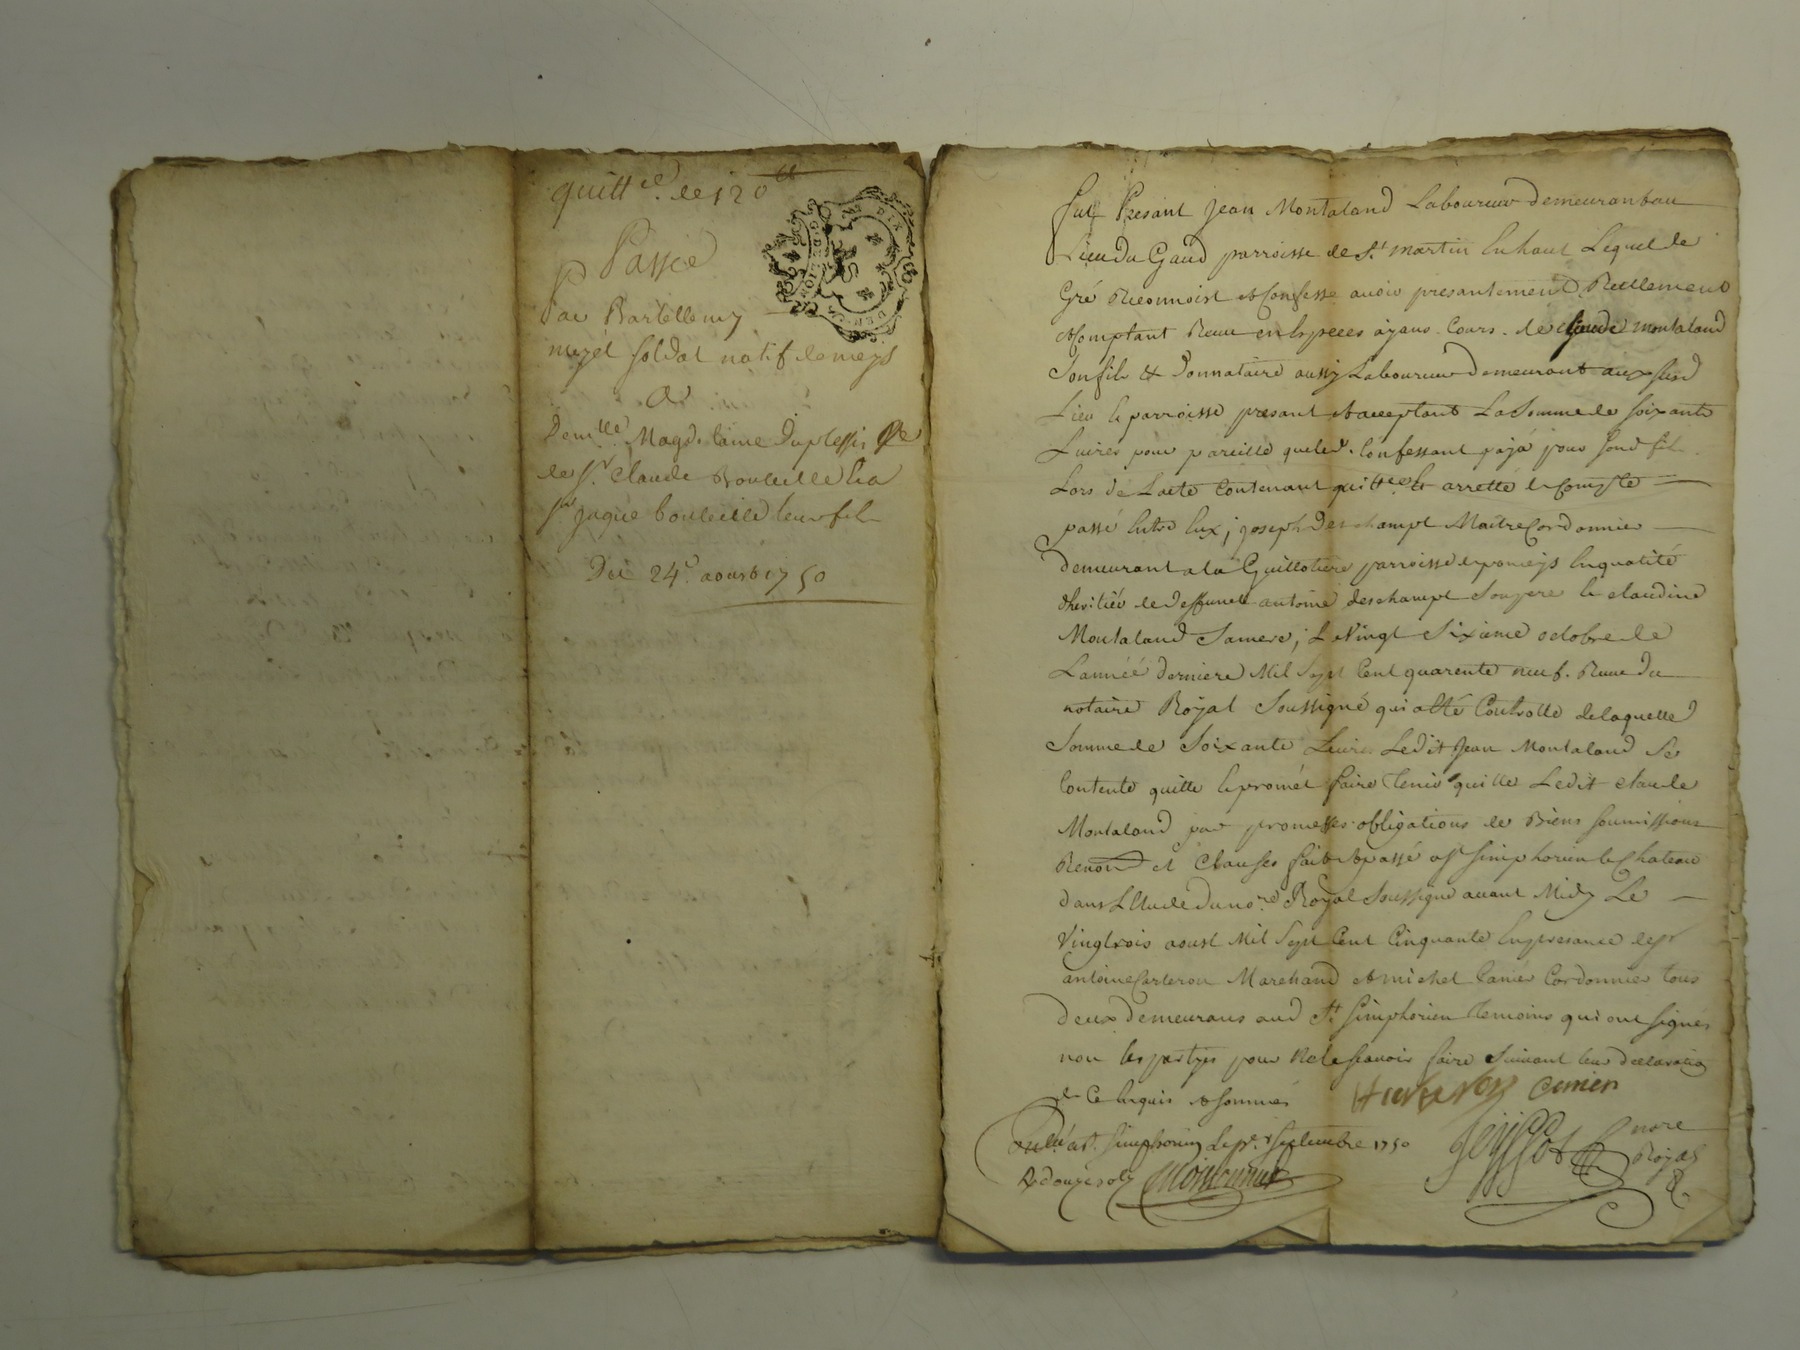 quitt.ce de 120 tt
Passée
Par Bartellemy
mezel soldat natif de meys
A
Demlle Magdelaine Duplessis
de Sr. Claude Bouteille
Sr jaque bouteille leur fils
Du 24e aoust 1750
GEN DE LION
Fut Présant Jean Montaland Laboureur demeurant au
Lieu du Gaud parroisse de St martin En haut Lequel de
Gré Reconnoist et Confesse avoir presantement Reellement
et Comptant Receu en Especes ayans Cours de Claude montaland
Son fils et Donnataire aussy Laboureur demeurant aux susd
Lieu et parroisse presant et acceptant La Somme de soixante
Livres pour pareille que led. Confessant paja pour sond fils
Lors de Lacte Contenant quittce et arretté de Compte
passé Entre Eux, joseph deschampt Maitre Cordonnier
demeurant a la Guillotiere parroisse de pomeys En qualité
dheritier de deffunct antoine deschampt Son pere et claudine
Montaland Sa mere, Le Vingt Sixieme octobre de
Lannéé derniere Mil Sept Cent quarente neuf. Receu du
notaire Royal Soussigné qui a été Controllé de laquelle
Somme de Soixante Livres Ledit Jean Montaland Se
Contente quitte et promet faire tenir quitte Ledit claude
Montaland par promesses obligations de Biens soumissions
Renon et Clauses fait et passé a St simphorien le Chateau
dans LEtude du nore. Royal Soussigné avant Midy Le
Vingtrois aoust Mil Sept Cent Cinquante En presance de sr
antoine Carteron Marchand et michel Canier Cordonnier tous
deux demeurans aud St. Simphorien temoins qui ont signés
non les partyes pour ne le sçavoir faire Suivant leur declaration
de Ce Enquis et Sommés
Canier
nore
Royal
Conlé a St. Simphorien Le pr. septembre 1750
R douze sols